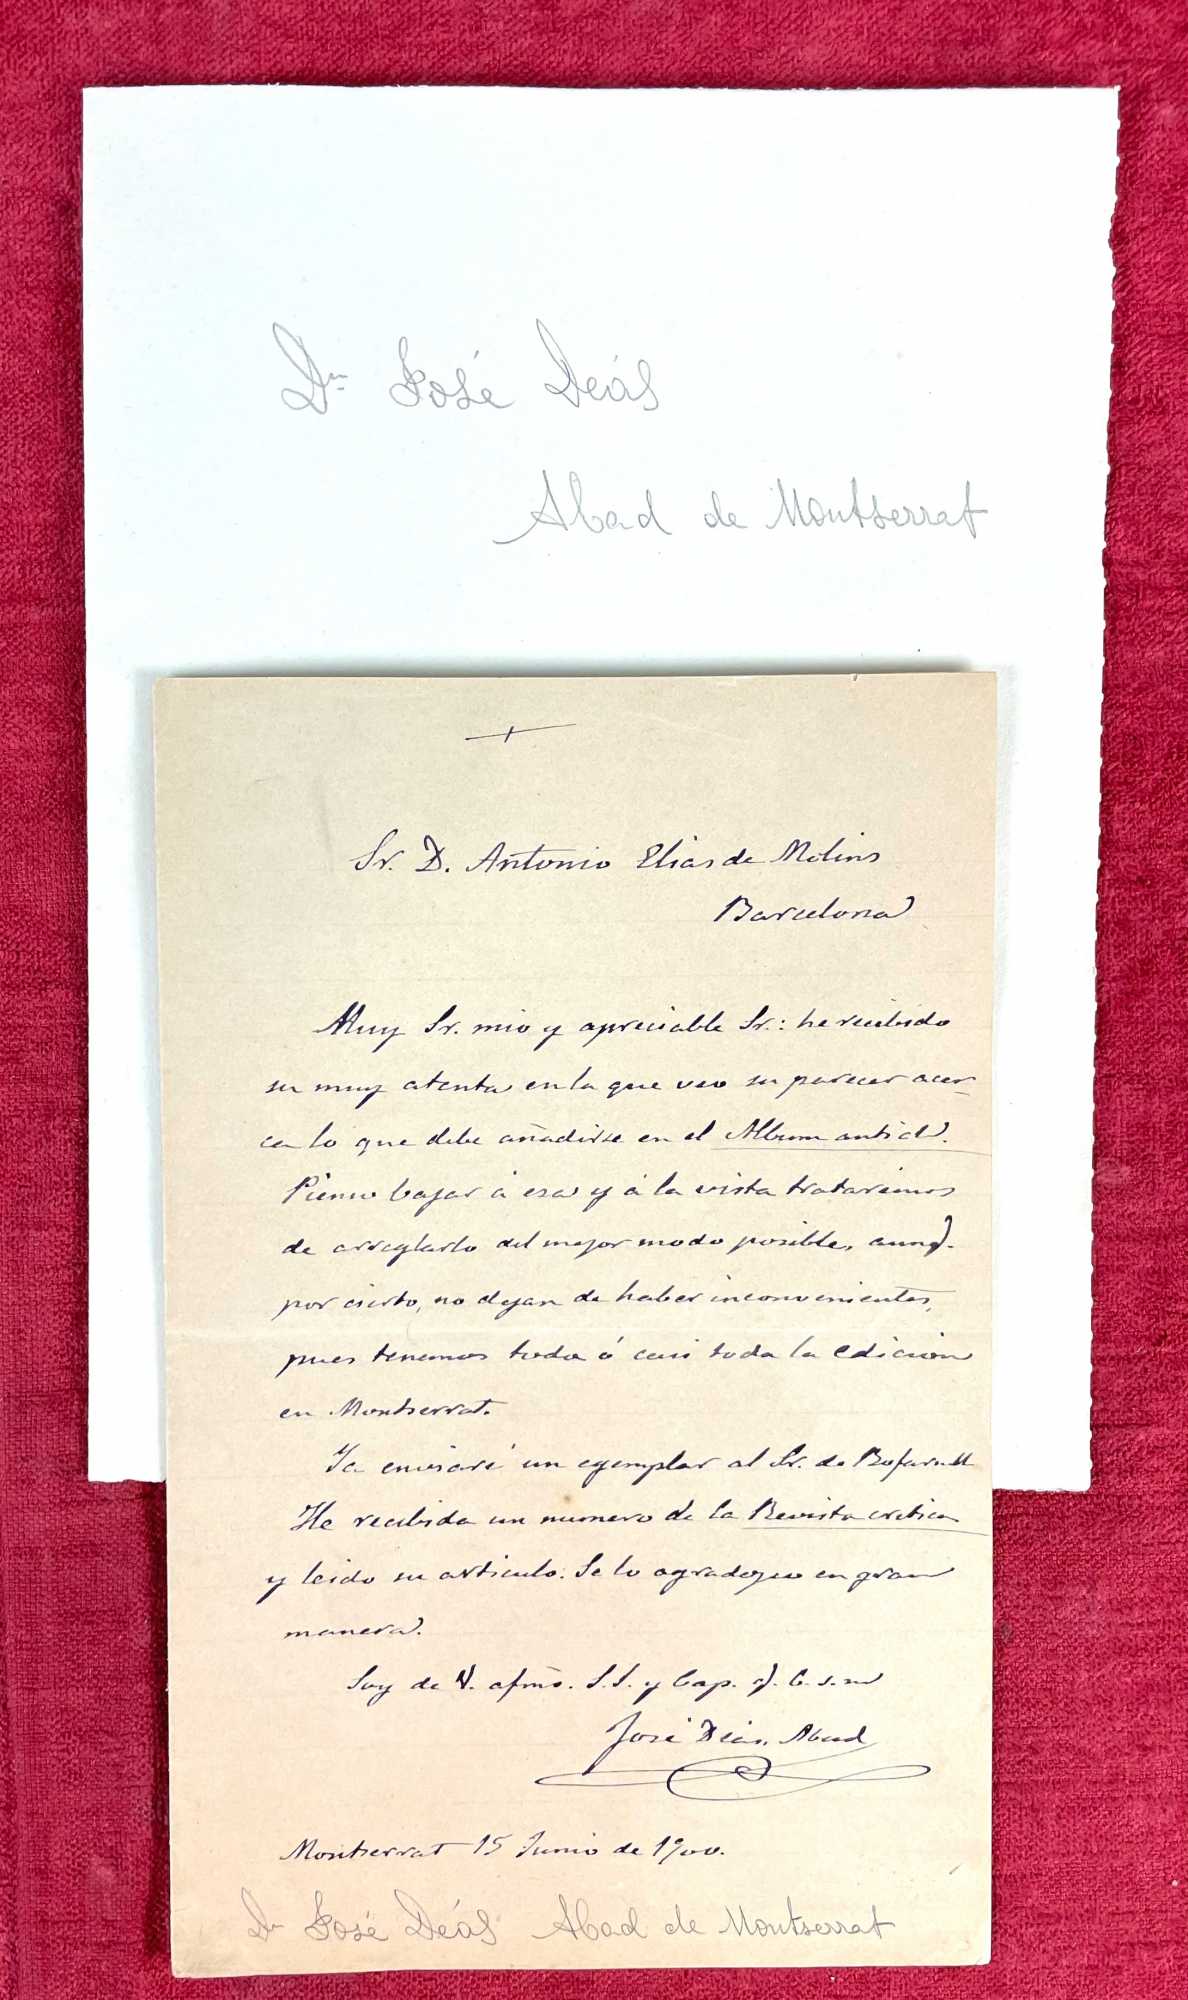 Dn José Deás
Abad de Montserrat
Sr. D. Antonio Elias de Molins
Barcelona
Muy Sr. mio y apreciable Sr.: he recibido
su muy atenta en la que veo su parecer acer-
ca lo que debe añadirse en el Album
Pienso bajar á esa y á la vista trataremos
de arreglarlo del mejor modo posible, aunq.
por cierto, no dejan de haber inconvenientes,
pues tenemos toda ó casi toda la edicion
en Montserrat.
Ya enviaré un ejemplar al Sr. de Bofarull
He recibido un numero de la Revista critica
y leido su articulo. Se lo agradezco en gran
manera.
Soy de V. afmo. S.S. y Cap. q. b. s. m
José Deás, Abad
Montserrat 15 Junio de 1900.
Dn José Deás Abad de Montserrat